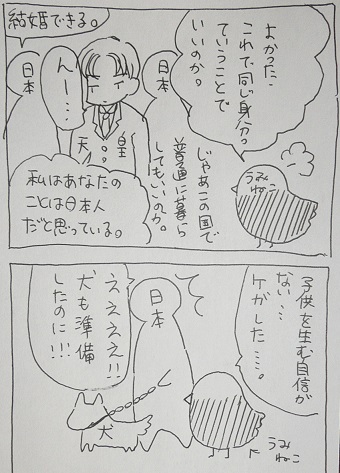 よかった…
これで同じ身分。
ていうことで
いいのか。
じゃあこの国で
普通に暮ら
してもいいのか。
うみねこ
日本
んー…
皇
天
日本
結婚できる。
私はあなたの
ことは日本人
だと思っている。
子供を生む自信が
ない…
ケガした…。
うみ
ねこ
日本
ええええ!!
犬も準備
したのに!!!
犬